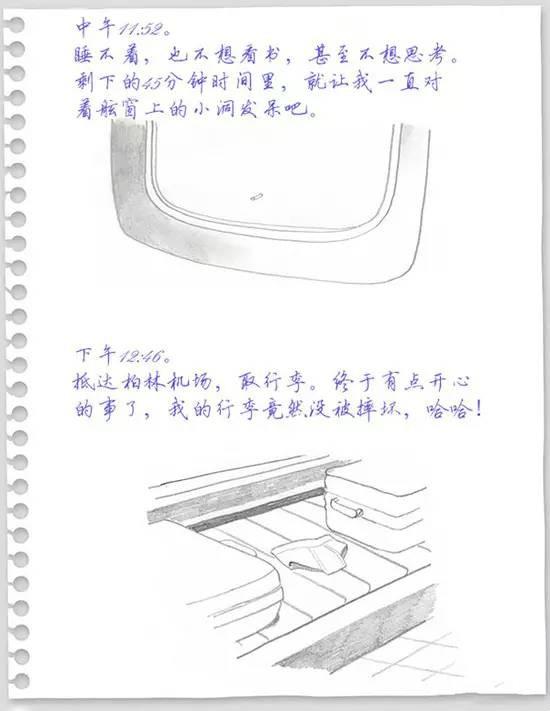 中午11:52。
睡不着，也不想看书，甚至不想思考。
剩下的45分钟时间里，就让我一直对
着舷窗上的小洞发呆吧。
下午12:46。
抵达柏林机场，取行李。终于有点开心
的事了，我的行李竟然没被摔坏，哈哈！